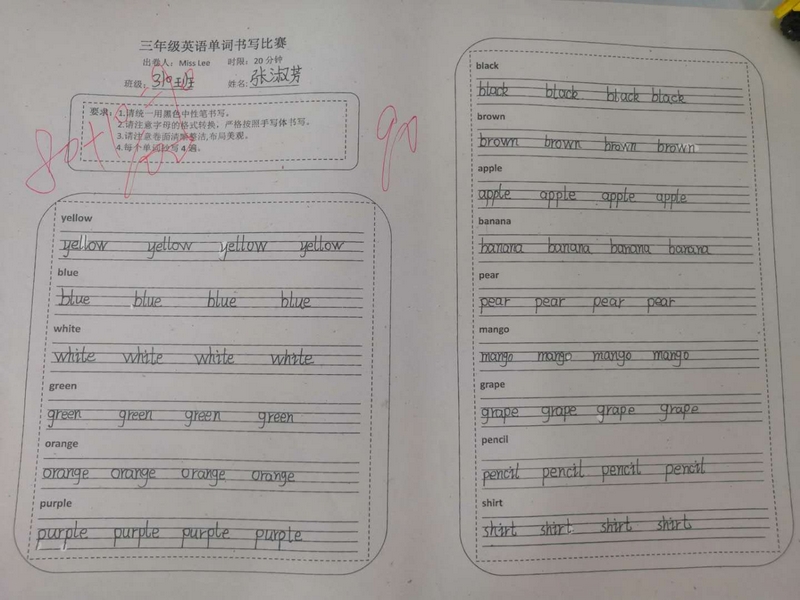 三年级英语单词书写比赛
出卷人：Miss Lee 时限：20分钟
班级： 姓名：张淑芳
要求：1.请统一用黑色中性笔书写。
2.请注意字母的格式转换，严格按照手写体书写。
3.请注意卷面清晰整洁,布局美观。
4.每个单词抄写4遍。
90
yellow
yellow yellow yellow yellow
blue
blue blue blue blue
white
white white white white
green
green green green green
orange
orange orange orange orange
purple
purple purple purple purple
black
black black black black
brown
brown brown brown brown
apple
apple apple apple apple
banana
banana banana banana banana
pear
pear pear pear pear
mango
mango mango mango mango
grape
grape grape grape grape
pencil
pencil pencil pencil pencil
shirt
shirt shirt shirt shirt